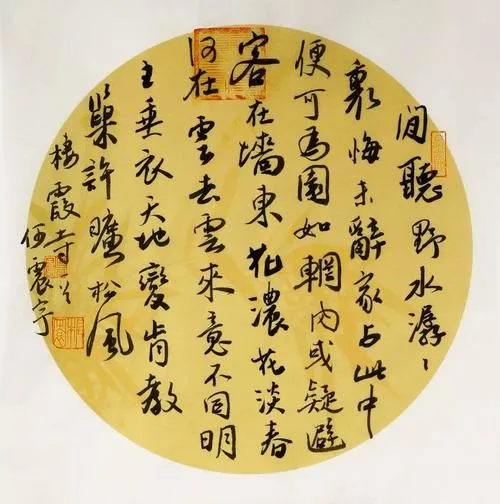 閒聽野水潺〻
裏悔未辭家与此中
便可為園如輞内或疑避
客在墻東花濃花淡春
何在雲去雲來意不同明
主垂衣天地變肯教
巢許曠松風
棲霞寺
震宇